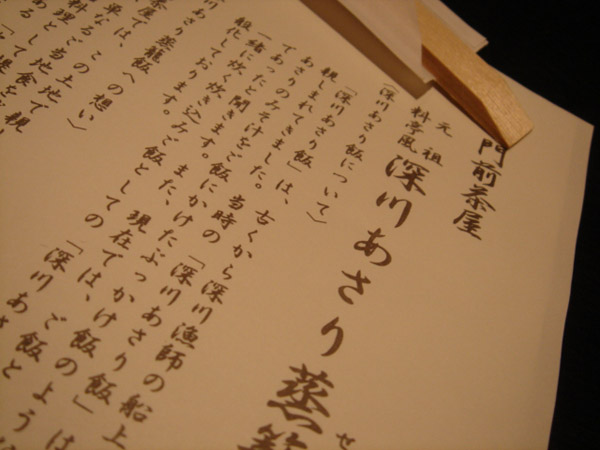 門前茶屋
元祖
料亭風
深川あさり蒸
せ
〈深川あさり飯について〉
「深川あさり飯」は、古くから深川漁師の船上
親しまれてきました。当時の「深川あさり飯」は
あさりのみそ汁をご飯にかけたぶっかけご飯のよう
であったと聞きます。また、現在では、
一緒に炊く炊き込みご飯としての「深川あさ
般化しております。
川あさり蒸籠飯への想い〉
茶屋では、